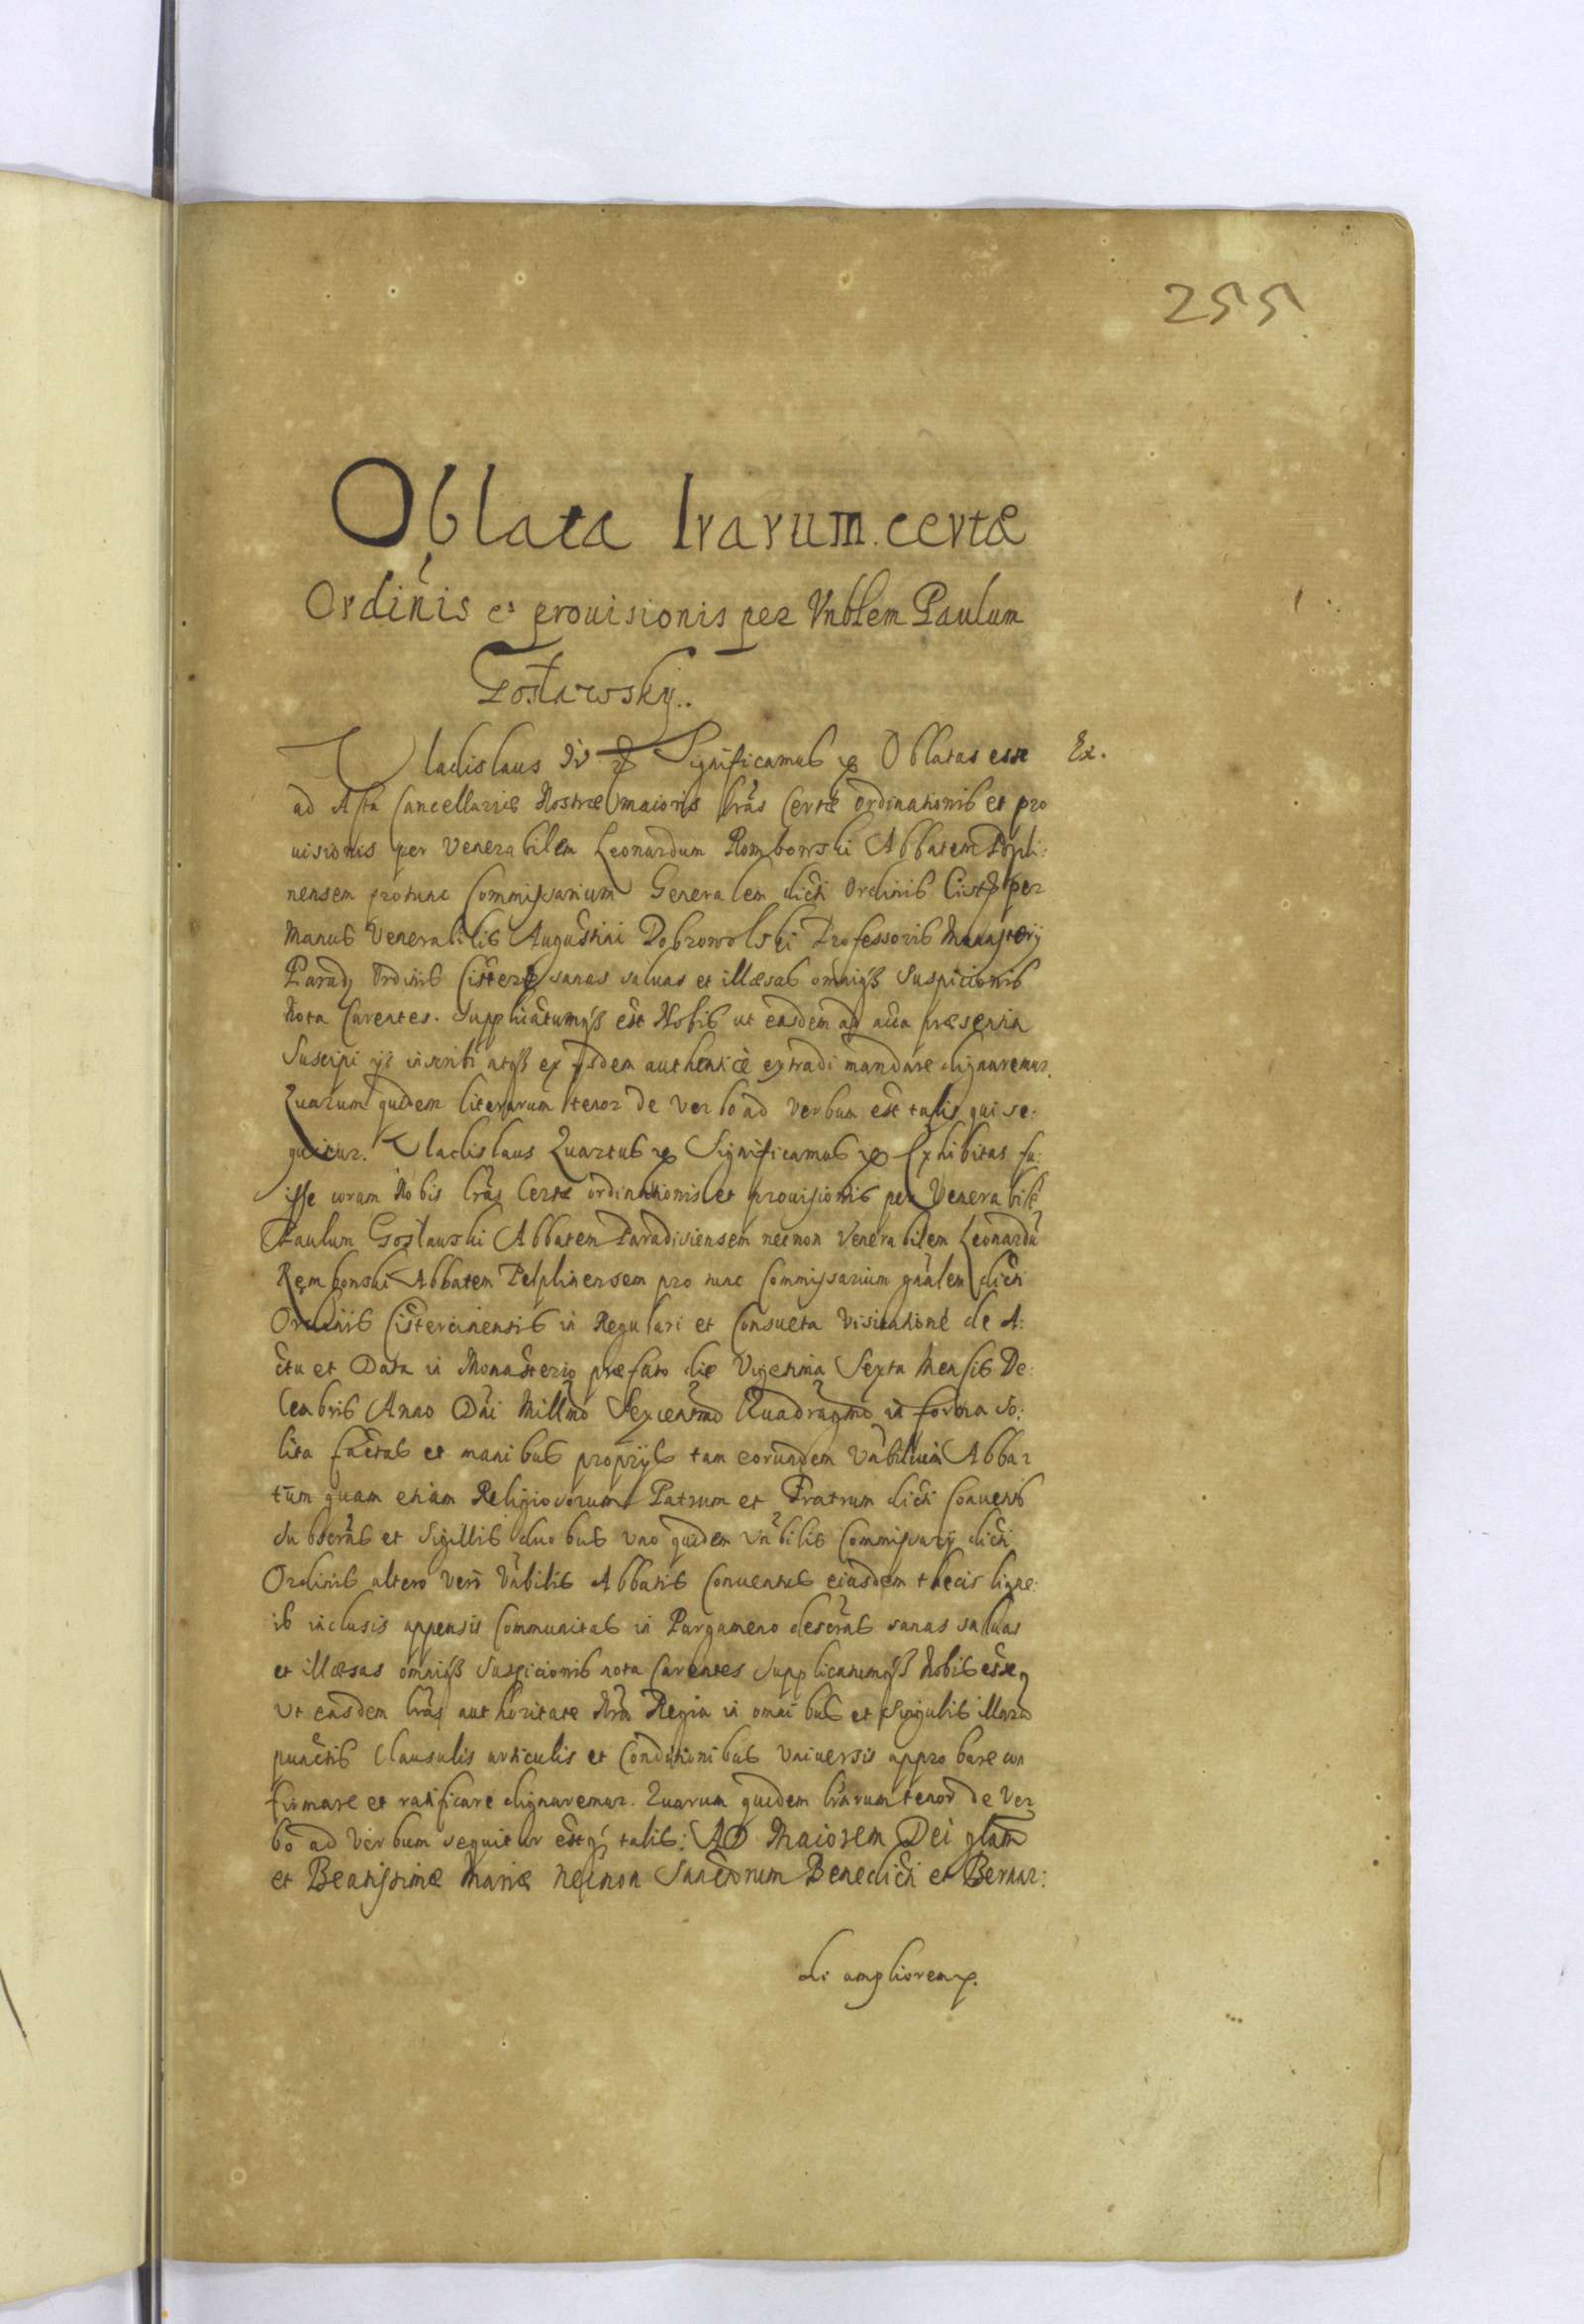 255
Oblata lrarum certæ
Ordinis et prouisionis per Vnblem Paulum
Gosławsky.
Vladislaus IV Significamus Oblatas esse Ex.
ad Acta Cancellariæ Nostræ maioris lras Certæ ordinationis et pro
uisionis per Venerabilem Leonardum Rombowski Abbatem Pepli:
nensem protunc Commissarium Generalem dicti Ordinis Cist per
Manus Venerabilis Augustini Dobrowolski Professoris Monastery
Parad Ordinis Cisterc sanas saluas et illæsas omniqß Suspicionis
Nota Carentes. Supplicatumqß est Nobis ut easdem ad acta præsentia
Suscipi ijs inscribi atqß ex ijsdem authenticè extradi mandare dignaremur.
Quarum quidem literarum tenor de Verbo ad Verbum est talis qui se:
quitur. Vladislaus Quartus Significamus Exhibitas fu:
isse coram Nobis lras Certæ ordinationis et prouisionis per Venerabile
Paulum Goslauski Abbatem Paradisiensem necnon Venerabilem Leonardu
Rembonski Abbatem Pelplinensem pro tunc Commissarium gnalem dicti
Ordinis Cisterciensis in Regulari et Consueta Visitatione de A:
ctu et Data in Monasterio præfato die Vigesima Sexta Mensis De:
Cembris Anno Dni Millmo Sexcentmo Quadragmo in forma so:
lita factas et manibus proprijs tam eorundem Vnbilium Abba
tum quam etiam Religiosorum Patrum et Fratrum dicti Conuents
subscras et Sigillis duobus Vno quidem Vnbilis Commissarij dicti
Ordinis altero Vero Vnbilis Abbatis Conuentus eiusdem thecis ligne:
is inclusis appensis Communitas in Pargameno descras sanas saluas
et illæsas omniqß Suspicionis nota Carentes Supplicatumqß Nobis esse
Vt easdem lras authoritate Nra Regia in omnibus et singulis illaru
punctis Clausulis articulis et Conditionibus Vniuersis approbare con
firmare et ratificare dignaremur. Quarum quidem lrarum tenor de Ver
bo ad Verbum sequitur estq talis: AD Maiorem Dei glam
et Beatissimæ Mariæ necnon Sanctorum Benedicti et Bernar:
di ampliorem